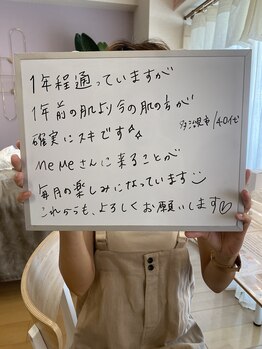 1年程通っていますが
1年前の肌より今の肌の方が
確実にスキです☆☆
MeMeさんに来ることが
毎月の楽しみになっています
これからも、よろしくお願いします
/40代